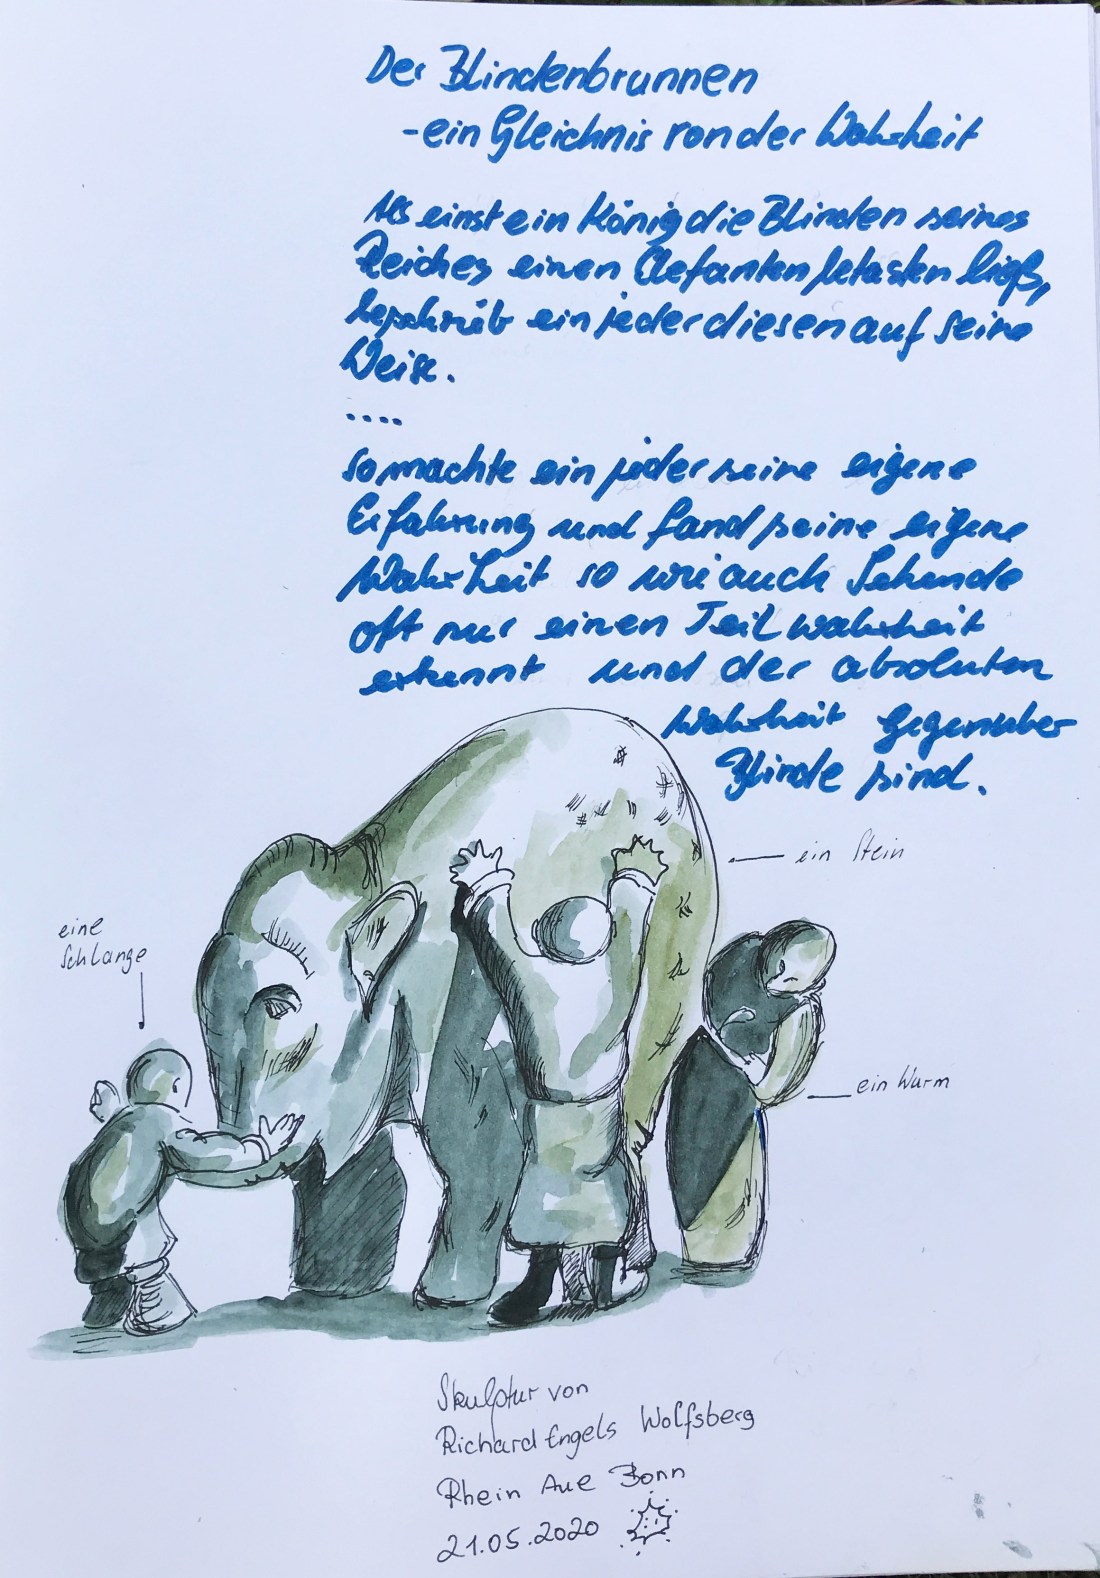 Der Blindenbrunnen
- ein Gleichnis von der Wahrheit
Als einst ein König die Blinden seines
Reiches einen Elefanten betasten ließ,
beschrieb ein jeder diesen auf seine
Weise.
....
so machte ein jeder seine eigene
Erfahrung und fand seine eigene
Wahrheit so wie auch Sehende
oft nur einen Teil wahrheit
erkennt und der absoluten
Wahrheit gegenüber
Blinde sind.
ein Stein
eine
Schlange
ein Wurm
Skulptur von
Richard Engels Wolfsberg
Rhein Aue Bonn
21.05.2020